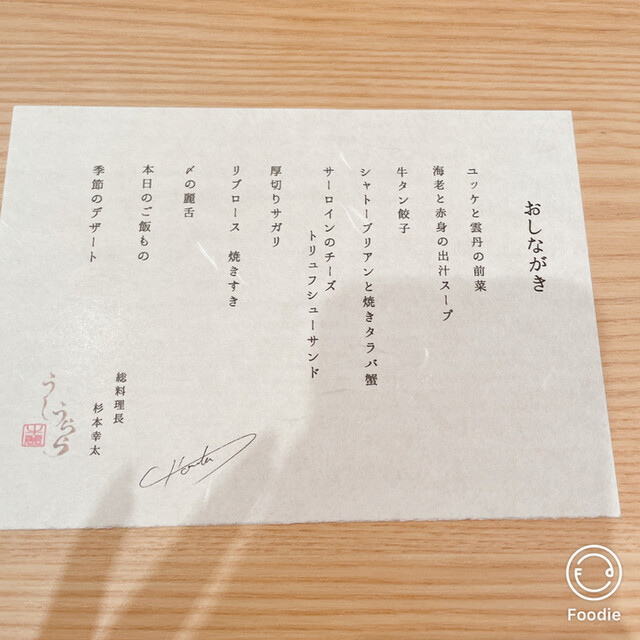 おしながき
ユッケと雲丹の前菜
海老と赤身の出汁スープ
牛タン餃子
シャトーブリアンと焼きタラバ蟹
サーロインのチーズ
トリュフシューサンド
厚切りサガリ
リブロース 焼きすき
〆の麗舌
本日のご飯もの
季節のデザート
総料理長
杉本幸太
うらら
うし
Foodie